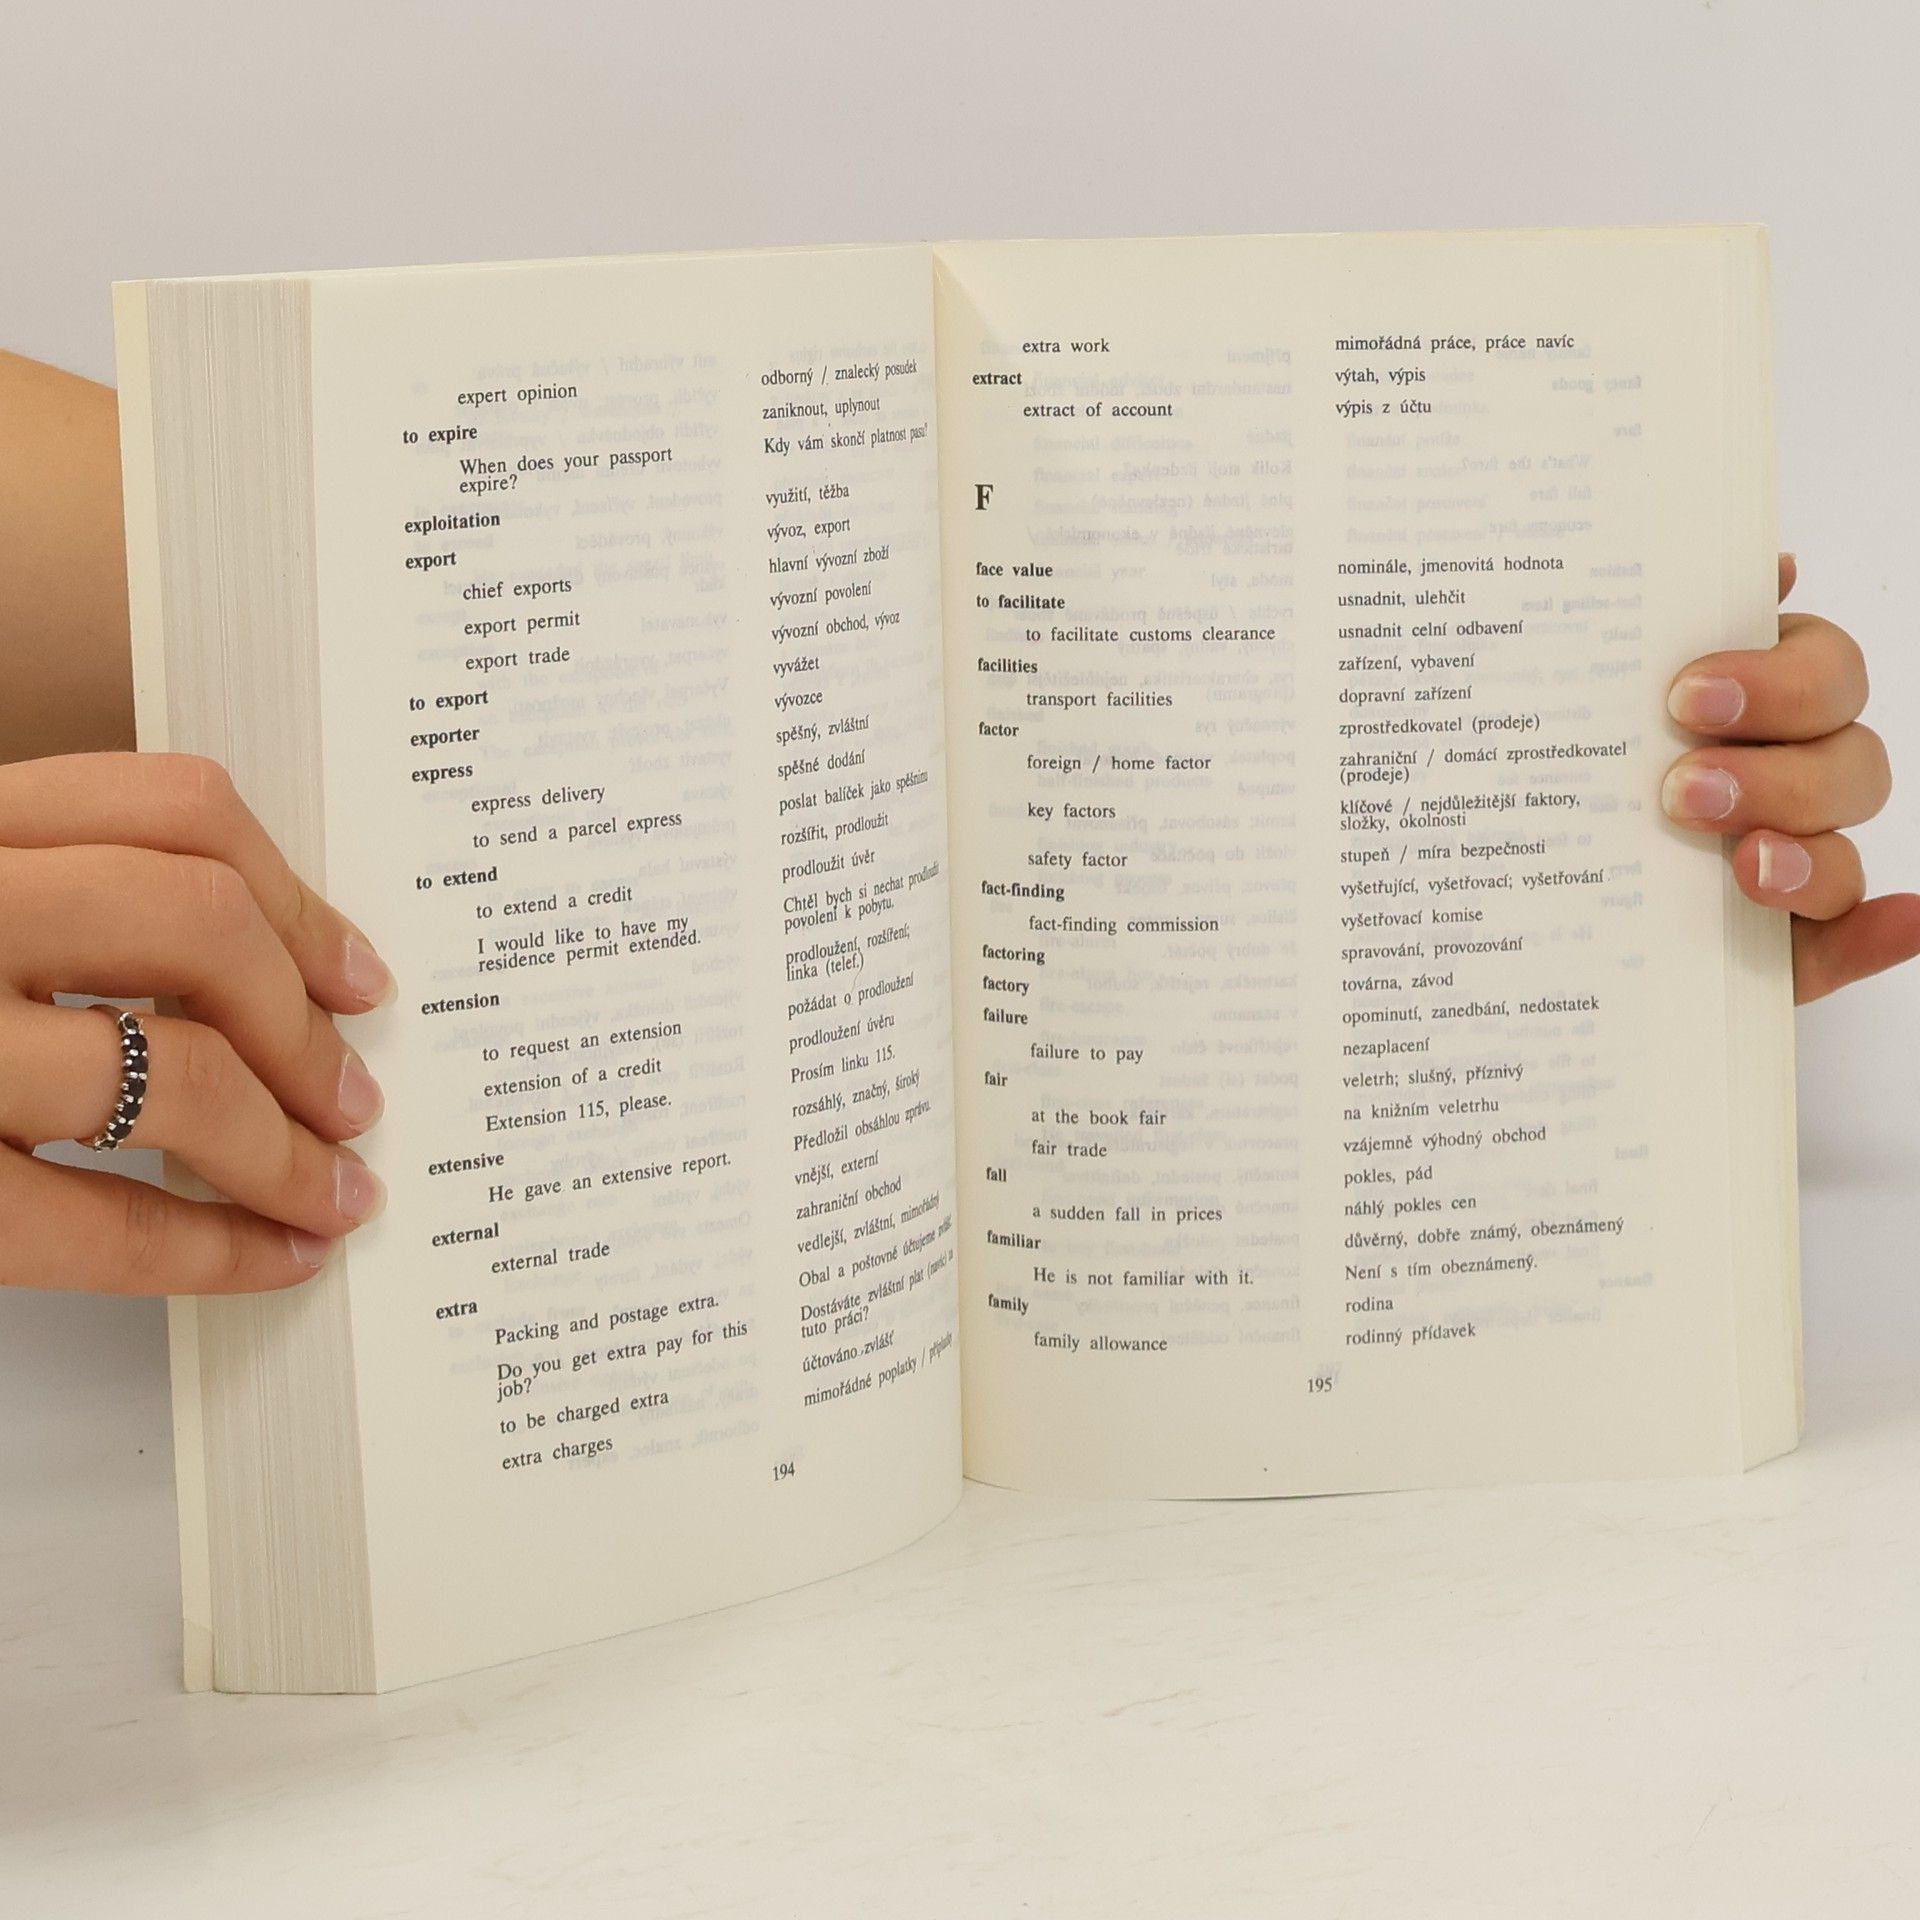 expert opinion odborný / znalecký posudek
to expire zaniknout, uplynout
When does your passport Kdy vám skončí platnost pasu?
expire?
exploitation využití, těžba
export vývoz, export
chief exports hlavní vývozní zboží
export permit vývozní povolení
export trade vývozní obchod, vývoz
to export vyvážet
exporter vývozce
express spěšný, zvláštní
express delivery spěšné dodání
to send a parcel express poslat balíček jako spěšninu
to extend rozšířit, prodloužit
to extend a credit prodloužit úvěr
I would like to have my Chtěl bych si nechat prodloužit
residence permit extended. povolení k pobytu.
extension prodloužení, rozšíření;
linka (telef.)
to request an extension požádat o prodloužení
extension of a credit prodloužení úvěru
Extension 115, please. Prosím linku 115.
extensive rozsáhlý, značný, široký
He gave an extensive report. Předložil obsáhlou zprávu.
external vnější, externí
external trade zahraniční obchod
extra vedlejší, zvláštní, mimořádný
Packing and postage extra. Obal a poštovné účtujeme
Do you get extra pay for this Dostáváte zvláštní plat (navíc) za
job? tuto práci?
to be charged extra účtováno zvlášť
extra charges mimořádné poplatky / příplatky
194
extra work mimořádná práce, práce navíc
extract výtah, výpis
extract of account výpis z účtu
F
face value nominále, jmenovitá hodnota
to facilitate usnadnit, ulehčit
to facilitate customs clearance usnadnit celní odbavení
facilities zařízení, vybavení
transport facilities dopravní zařízení
factor zprostředkovatel (prodeje)
foreign / home factor zahraniční / domácí zprostředkovatel
(prodeje)
key factors klíčové / nejdůležitější faktory,
složky, okolnosti
safety factor stupeň / míra bezpečnosti
fact-finding vyšetřující, vyšetřovací; vyšetřování
fact-finding commission vyšetřovací komise
factoring spravování, provozování
factory továrna, závod
failure opominutí, zanedbání, nedostatek
failure to pay nezaplacení
fair veletrh; slušný, příznivý
at the book fair na knižním veletrhu
fair trade vzájemně výhodný obchod
fall pokles, pád
a sudden fall in prices náhlý pokles cen
familiar důvěrný, dobře známý, obeznámený
He is not familiar with it. Není s tím obeznámený.
family rodina
family allowance rodinný přídavek
195